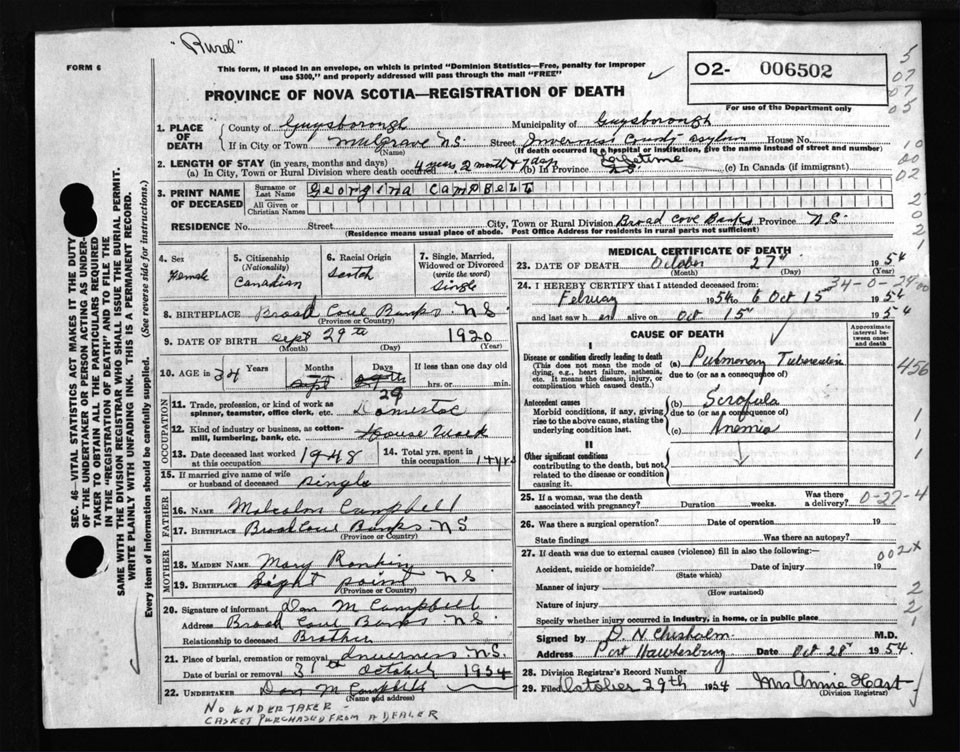 "Rural"
FORM 6
This form, if placed in an envelope, on which is printed "Dominion Statistics—Free, penalty for improper
use $300," and properly addressed will pass through the mail "FREE"
PROVINCE OF NOVA SCOTIA—REGISTRATION OF DEATH
02- 006502
For use of the Department only
5
07
07
05
1. PLACE OF DEATH { County of Guysborough Municipality of Guysborough
If in City or Town Mulgrave N.S. Street Inverness County Asylum House No.
(Name) (If death occurred in a hospital or institution, give the name instead of street and number)
10
00
02
2. LENGTH OF STAY (in years, months and days) Lifetime
(a) In City, Town or Rural Division where death occurred 4 years, 2 month & 7 days (b) In Province N.S. (c) In Canada (if immigrant)
3. PRINT NAME OF DECEASED { Surname or Last Name Georgina Campbell
All Given or Christian Names
2
0
2
1
RESIDENCE No. Street City, Town or Rural Division Broad Cove Banks Province N.S.
(Residence means usual place of abode. Post Office Address for residents in rural parts not sufficient)
4. Sex
Female
5. Citizenship
(Nationality)
Canadian
6. Racial Origin
Scotch
7. Single, Married,
Widowed or Divorced
(write the word)
Single
8. BIRTHPLACE Broad Cove Banks N.S.
(Province or Country)
9. DATE OF BIRTH Sept 29th 1920
(Month) (Day) (Year)
10. AGE in 34 Years Months Days If less than one day old
28 hrs. or min.
OCCUPATION
11. Trade, profession, or kind of work as
spinner, teamster, office clerk, etc. Domestac
12. Kind of industry or business, as cotton-
mill, lumbering, bank, etc. House Work
13. Date deceased last worked
at this occupation 1948
14. Total yrs. spent in
this occupation 14 yrs
15. If married give name of wife
or husband of deceased single
FATHER
16. Name Malcolm Campbell
17. BIRTHPLACE Broad Cove Banks N.S.
(Province or Country)
MOTHER
18. MAIDEN NAME Mary Rankin
19. BIRTHPLACE Sight point N.S.
(Province or Country)
20. Signature of informant Dan M Campbell
Address Broad Cove Banks N.S.
Relationship to deceased Brother
21. Place of burial, cremation or removal Inverness N.S.
Date of burial or removal October 1954
22. UNDERTAKER Dan M Campbell
(Name and address)
NO UNDERTAKER -
CASKET PURCHASED FROM A DEALER
MEDICAL CERTIFICATE OF DEATH
23. DATE OF DEATH October 27th 1954
(Month) (Day) (Year)
34-0-29
24. I HEREBY CERTIFY that I attended deceased from:
1954 to Oct 15 1954
and last saw her alive on Oct 15 1954
CAUSE OF DEATH
Approximate
interval between
onset
and death
I
Disease or condition directly leading to death
(This does not mean the mode of
dying, e.g., heart failure, asthenia,
etc. It means the disease, injury, or
complication which caused death.)
(a) Pulmonary Tuberculosis
due to (or as a consequence of)
456
Antecedent causes
Morbid conditions, if any, giving
rise to the above cause, stating the
underlying condition last.
(b) Scrofula
due to (or as a consequence of)
(c) Anemia
1
1
1
II
Other significant conditions
contributing to the death, but not
related to the disease or condition
causing it.
25. If a woman, was the death
associated with pregnancy? Duration weeks. Was there
a delivery? 0-27-4
26. Was there a surgical operation? Date of operation 19
State findings Was there an autopsy?
27. If death was due to external causes (violence) fill in also the following:—
002X
Accident, suicide or homicide? Date of injury 19
(State which)
Manner of injury
(How sustained)
Nature of injury
2
2
1
Specify whether injury occurred in industry, in home, or in public place
Signed by D. N. Chisholm M.D.
Address Port Hawkesbury Date Oct 28th 1954
28. Division Registrar's Record Number
29. Filed October 29th 1954 Mrs Annie Hart
(Division Registrar)
SEC. 46—VITAL STATISTICS ACT MAKES IT THE DUTY
OF THE UNDERTAKER OR PERSON ACTING AS UNDER-
TAKER TO OBTAIN ALL THE PARTICULARS REQUIRED
IN THE "REGISTRATION OF DEATH" AND TO FILE THE
SAME WITH THE DIVISION REGISTRAR WHO SHALL ISSUE THE BURIAL PERMIT.
WRITE PLAINLY WITH UNFADING INK. THIS IS A PERMANENT RECORD.
Every item of information should be carefully supplied. (See reverse side for instructions.)